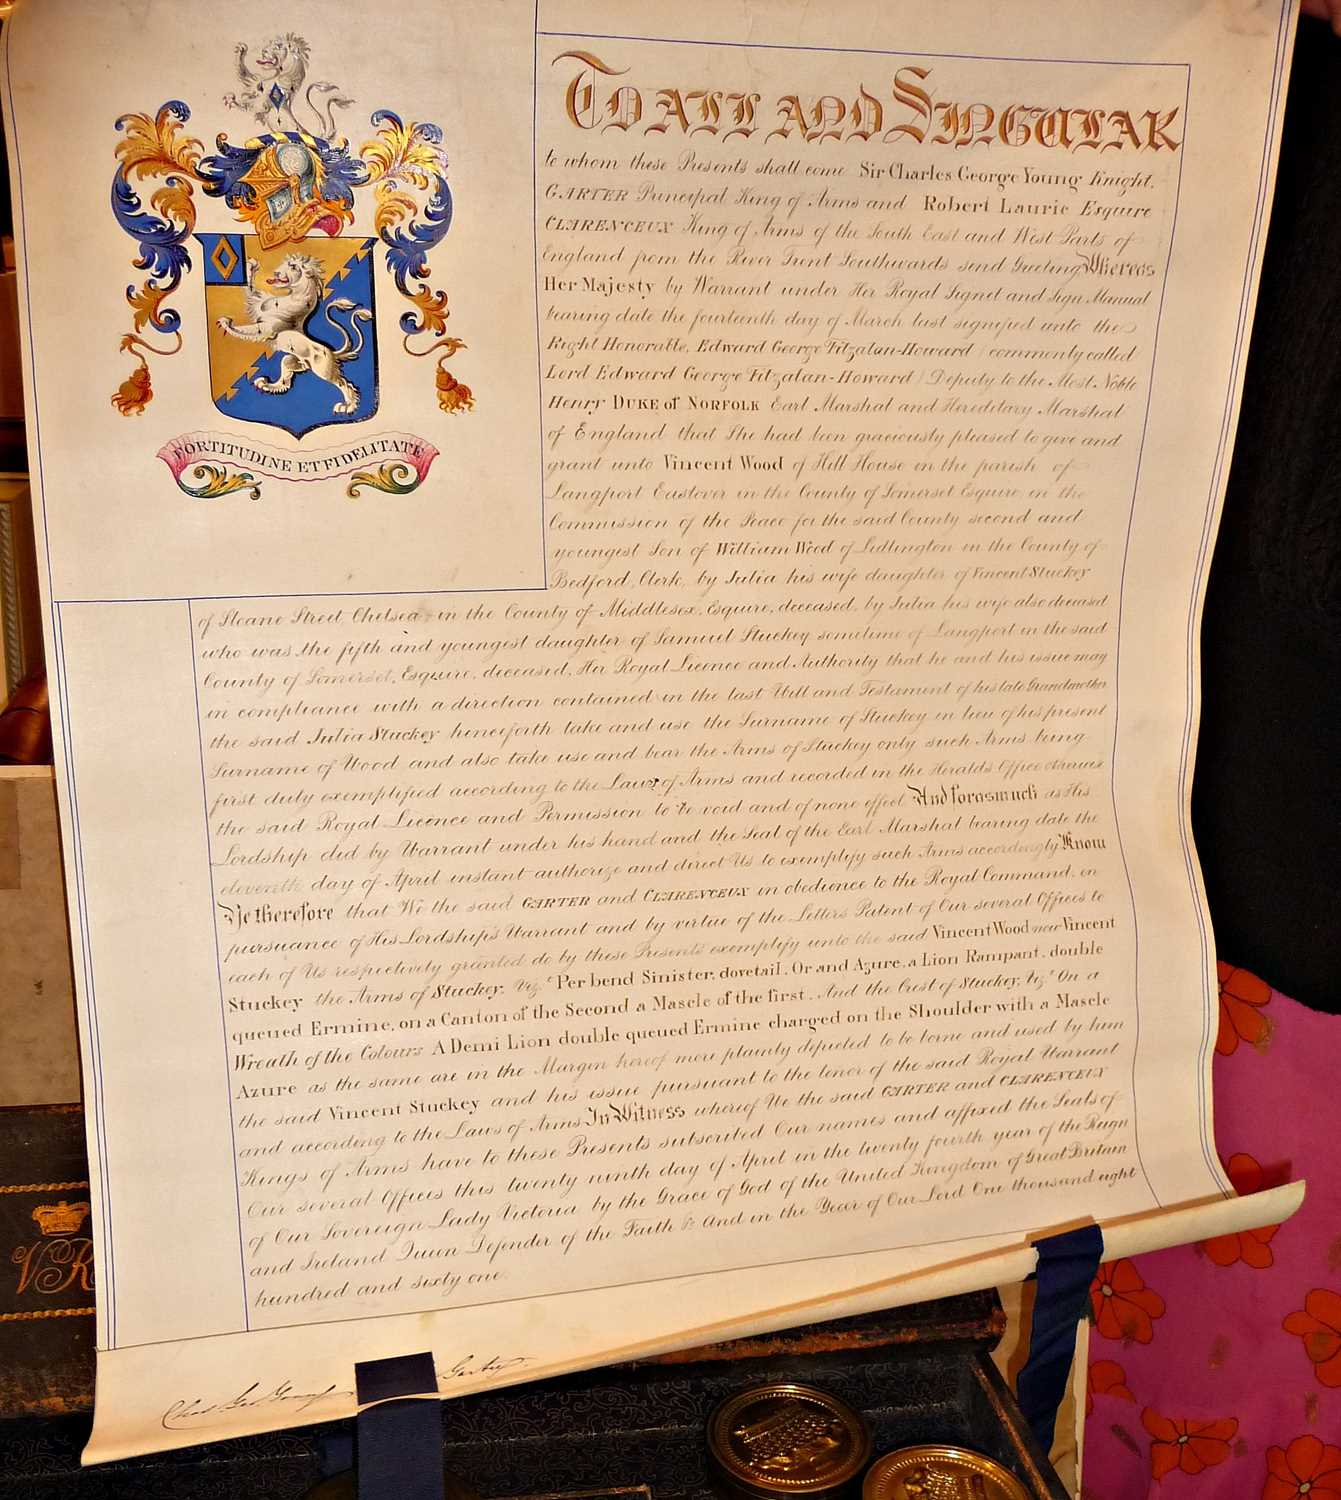 FORTITUDINE ET FIDELITATE
TO ALL AND SINGULAR
to whom these Presents shall come Sir Charles George Young Knight,
GARTER Principal King of Arms and Robert Laurie Esquire
CLARENCEUX King of Arms of the South East and West Parts of
England from the River Trent Southwards send Greeting Whereas
Her Majesty by Warrant under Her Royal Signet and Sign Manual
bearing date the fourteenth day of March last signified unto the
Right Honorable, Edward George Fitzalan-Howard (commonly called
Lord Edward George Fitzalan-Howard) Deputy to the Most Noble
Henry DUKE of NORFOLK Earl Marshal and Hereditary Marshal
of England that She had been graciously pleased to give and
grant unto Vincent Wood of Hill House in the parish of
Langport Eastover in the County of Somerset Esquire, in the
Commission of the Peace for the said County second and
youngest Son of William Wood of Lidlington in the County of
Bedford, Clerk, by Julia his wife daughter of Vincent Stuckey
of Sloane Street, Chelsea, in the County of Middlesex, Esquire, deceased, by Julia his wife also deceased
who was the fifth and youngest daughter of Samuel Stuckey sometime of Langport in the said
County of Somerset, Esquire, deceased, Her Royal Licence and Authority that he and his issue may
in compliance with a direction contained in the last Will and Testament of his late Grandmother
the said Julia Stuckey henceforth take and use the Surname of Stuckey in lieu of his present
Surname of Wood and also take use and bear the Arms of Stuckey only such Arms being
first duly exemplified according to the Laws of Arms and recorded in the Heralds Office otherwise
the said Royal Licence and Permission to be void and of none effect And forasmuch as His
Lordship did by Warrant under his hand and the Seal of the Earl Marshal bearing date the
eleventh day of April instant authorize and direct Us to exemplify such Arms accordingly Know
Ye therefore that We the said GARTER and CLARENCEUX in obedience to the Royal Command, in
pursuance of His Lordship's Warrant and by virtue of the Letters Patent of Our several Offices to
each of Us respectively granted do by these Presents exemplify unto the said Vincent Wood now Vincent
Stuckey the Arms of Stuckey, Viz. "Per bend Sinister, dovetail, Or and Azure, a Lion Rampant, double
queued Ermine, on a Canton of the Second a Mascle of the first. And the Crest of Stuckey, Viz." On a
Wreath of the Colours A Demi Lion double queued Ermine charged on the Shoulder with a Mascle
Azure as the same are in the Margin hereof more plainly depicted to be borne and used by him
the said Vincent Stuckey and his issue pursuant to the tenor of the said Royal Warrant
and according to the Laws of Arms In Witness whereof We the said GARTER and CLARENCEUX
Kings of Arms have to these Presents subscribed Our names and affixed the Seals of
Our several Offices this twenty ninth day of April in the twenty fourth year of the Reign
of Our Sovereign Lady Victoria by the Grace of God of the United Kingdom of Great Britain
and Ireland Queen Defender of the Faith &c And in the Year of Our Lord One thousand eight
hundred and sixty one.
Chas Geo. Young Garter.
VR